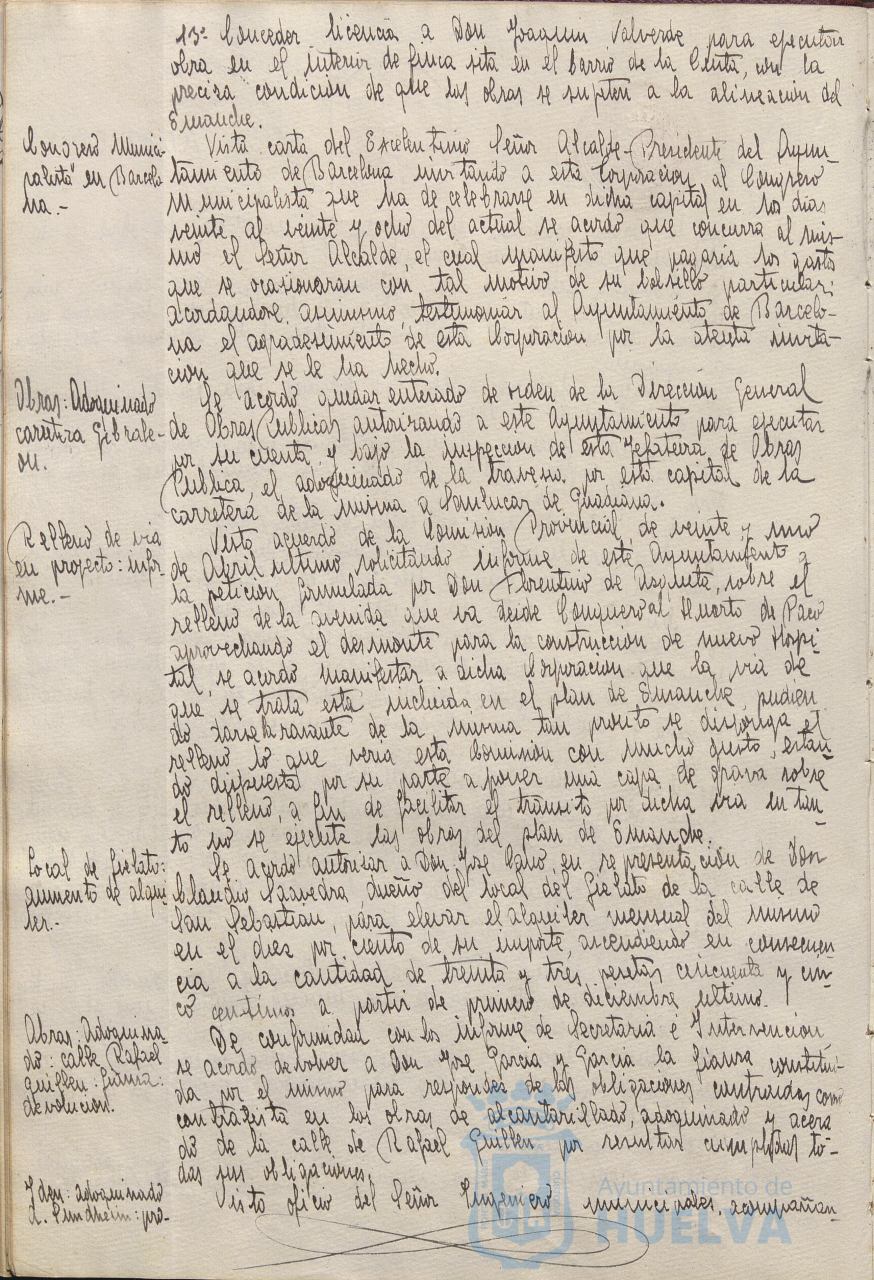 13º Conceder licencia a Don Joaquin Valverde para ejecutar
obra en el interior de finca sita en el barrio de la Cinta, con la
preciza condicion de que las obras se sujeten a la alineacion del
Ensanche.
Congreso Munici-
palista en Barcelo
na.-
Vista carta del Excelentisimo Señor Alcalde-Presidente del Ayun-
tamiento de Barcelona invitando a esta Corporacion al Congreso
Municipalista que ha de celebrarse en dicha capital en los dias
veinte al veinte y ocho del actual se acordo que concurra al mis-
mo el Señor Alcalde, el cual manifesto que pagaria los gastos
que se ocasionaran con tal motivo de su bolsillo particular;
acordandose asimismo, testimoniar al Ayuntamiento de Barcelo-
na el agradecimiento de esta Corporacion por la atenta invita-
cion que se le ha hecho.
Obras: Adoquinado
carretera Gibrale-
on.
Se acordo quedar enterado de orden de la Direccion General
de Obras Publicas autorizando a este Ayuntamiento para ejecutar
por su cuenta y bajo la inspeccion de esta Jefatura de Obras
Publica, el adoquinado de la travesia por esta capital de la
carretera de la misma a Sanlucar de Guadiana.
Relleno de via
en proyecto: infor-
me.-
Visto acuerdo de la Comision Provincial, de veinte y uno
de Abril ultimo solicitando informe de este Ayuntamiento a
la peticion formulada por Don Florentino de Azqueta, sobre el
relleno de la avenida que va desde Conquero al Huerto de Paco
aprovechando el desmonte para la construccion de nuevo Hospi-
tal, se acordo manifestar a dicha Corporacion que la via de
que se trata esta incluida en el plan de Ensanche, pudien
do darse la rasante de la misma tan pronto se disponga el
relleno, lo que veria esta Comision con mucho gusto, estan-
do dispuesta por su parte a poner una capa de grava sobre
el relleno, a fin de facilitar el transito por dicha via en tan-
to no se ejecute las obras del plan de Ensanche.
Local de Fielato:
aumento de alqui
ler.-
Se acordo autorizar a Don Jose Cano, en representacion de Don
Claudio Saavedra, dueño del local del Fielato de la calle de
San Sebastian, para elevar el alquiler mensual del mismo
en el diez por ciento de su importe, ascendiendo en consecuen
cia a la cantidad de treinta y tres pesetas cincuenta y cin-
co centimos a partir de primero de diciembre ultimo.
Obras: Adoquina-
do: calle Rafael
Guillen: fianza:
devolucion.
De conformidad con los informe de Secretaria é Intervencion
se acordo devolver a Don Jose Garcia y Garcia la fianza constitui-
da por el mismo para responder de las obligaciones contraidas como
contratista en las obras de alcantarillado, adoquinado y acera
do de la calle de Rafael Guillen por resultar cumplidas to-
das sus obligaciones.
Iden: adoquinado
A. Sundheim: pro-
Visto oficio del Señor Ingeniero municipales, acompañan-
Ayuntamiento de
HUELVA